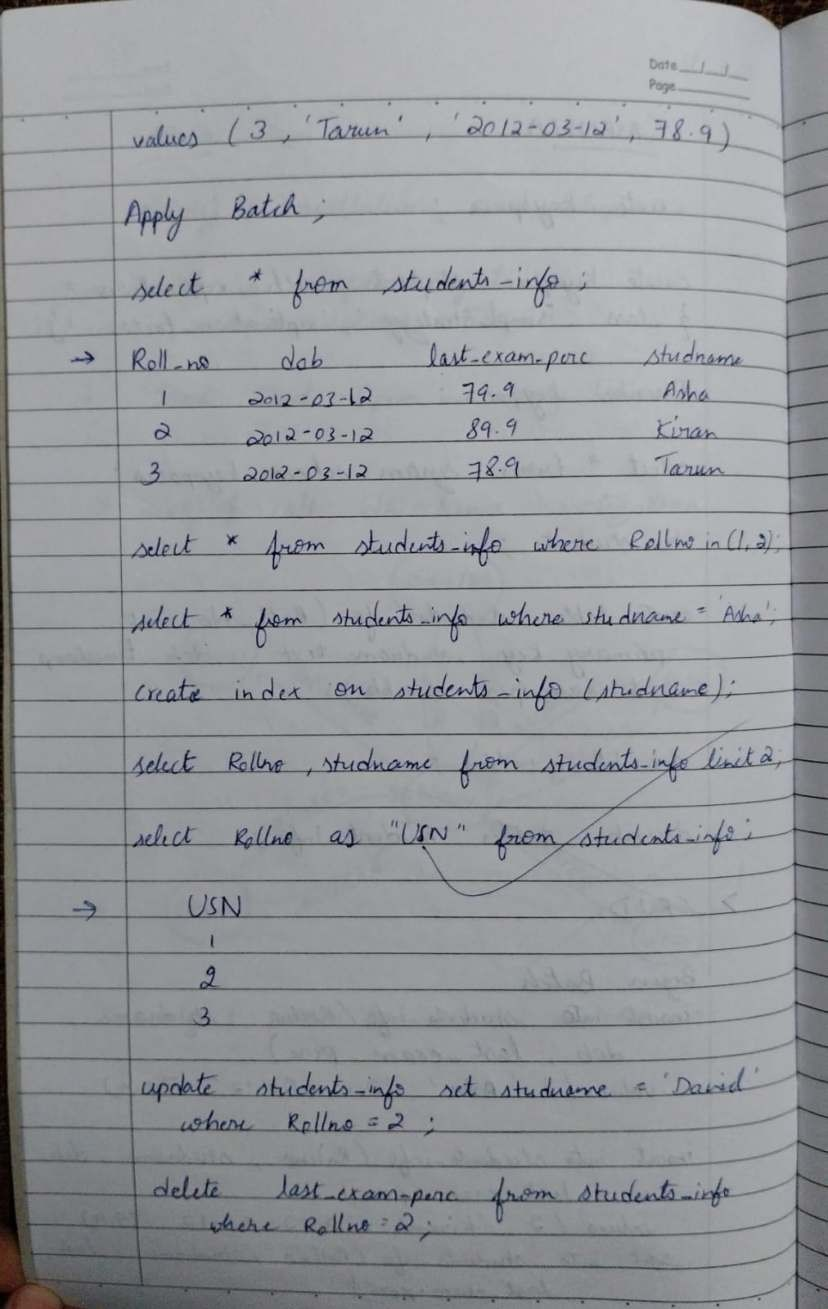 Date __/__/__
Page
values (3, 'Tarun', '2012-03-12', 78.9)
Apply Batch;
select * from students_info;
→ Roll_no dob last_exam_perc studname
1 2012-03-12 79.9 Asha
2 2012-03-12 89.9 Kiran
3 2012-03-12 78.9 Tarun
select * from students_info where Rollno in (1, 2);
select * from students_info where studname = 'Asha';
create index on students_info (studname);
select Rollno, studname from students_info limit 2;
select Rollno as "USN" from students_info;
→ USN
1
2
3
update students_info set studname = 'David'
where Rollno = 2;
delete last_exam_perc from students_info
where Rollno = 2;